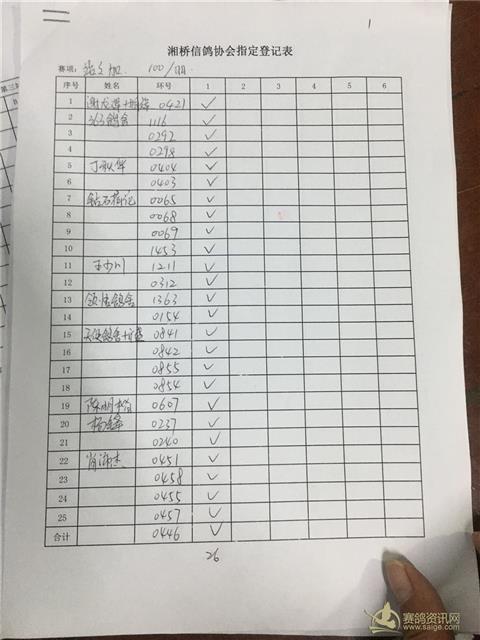 1
湘桥信鸽协会指定登记表
赛项: 100/羽.
序号 姓名 环号 1 2 3 4 5 6
1 0421 ✓
2 363鸽舍 1116 ✓
3 0292 ✓
4 0298 ✓
5 丁秋华 0404 ✓
6 0403 ✓
7 0065 ✓
8 0068 ✓
9 0069 ✓
10 1453 ✓
11 王少川 1211 ✓
12 0312 ✓
13 鸽舍 1363 ✓
14 0154 ✓
15 天使鸽舍 0841 ✓
16 0842 ✓
17 0855 ✓
18 0854 ✓
19 陈明 0607 ✓
20 杨 0237 ✓
21 0240 ✓
22 肖 杰 0451 ✓
23 0458 ✓
24 0455 ✓
25 0457 ✓
合计 0446 ✓
26
赛鸽资讯网
www.saige.com